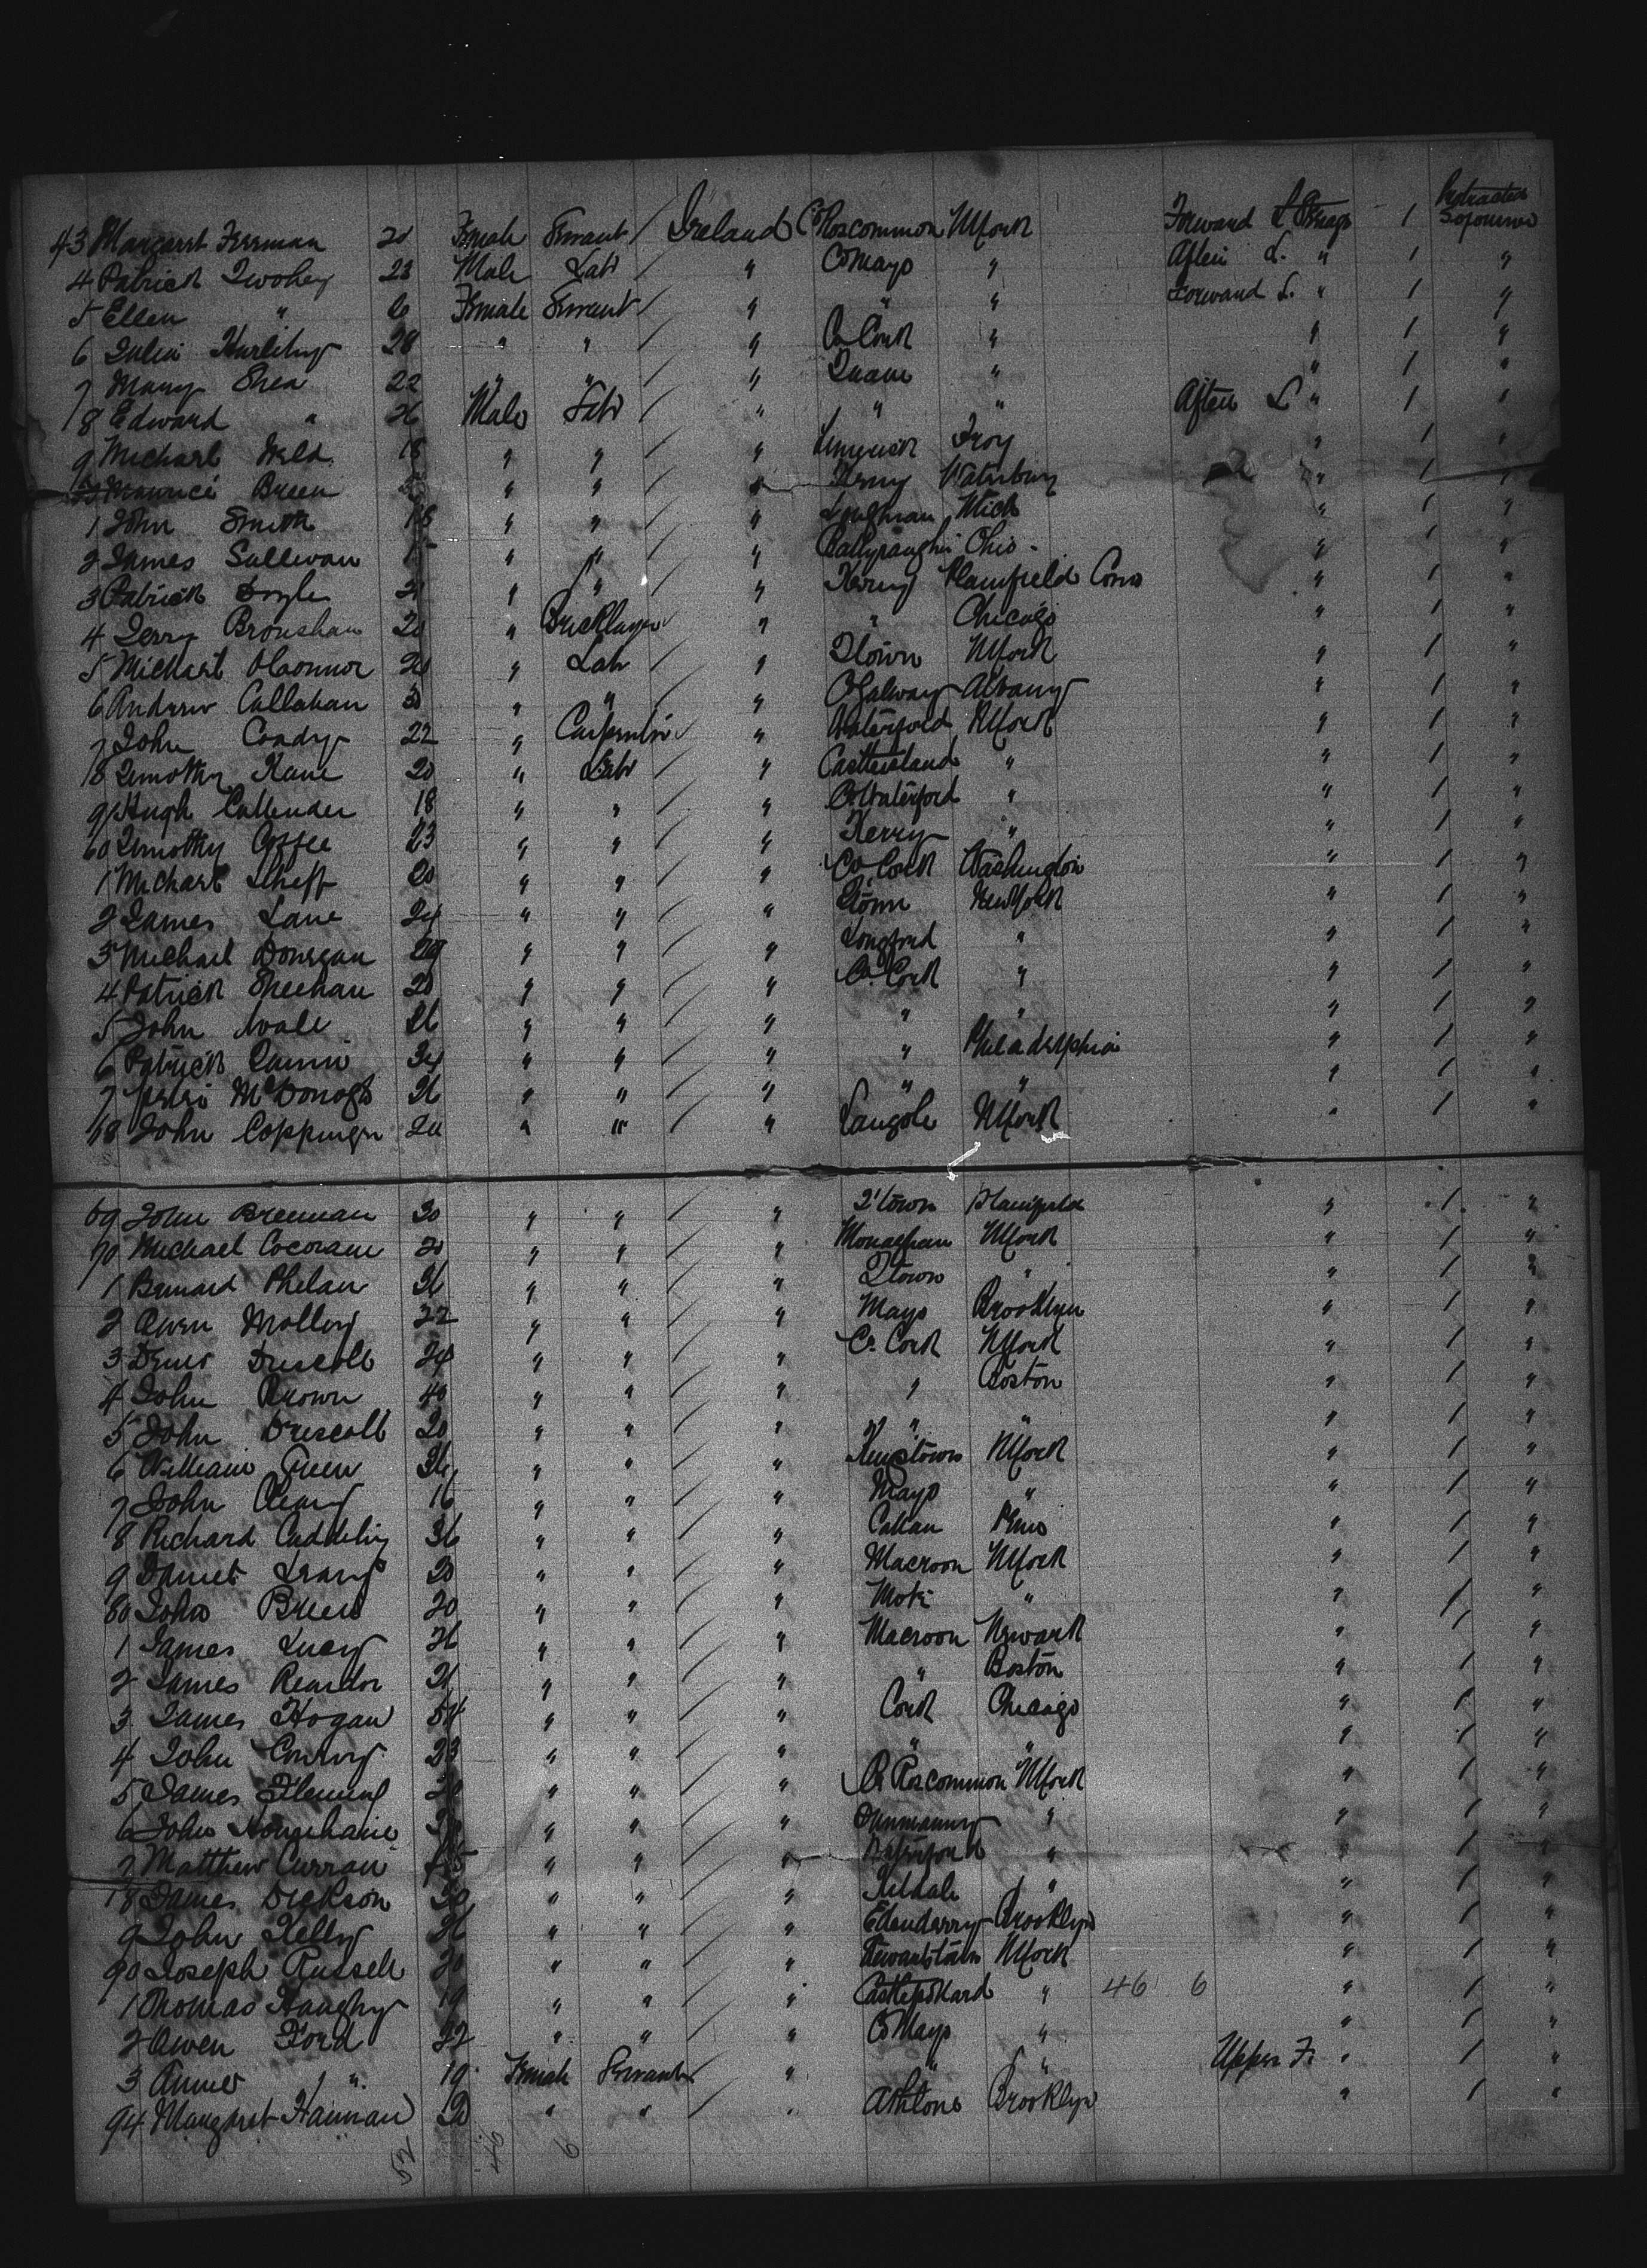 43 Margaret Freeman 20 Female Servant / Ireland Co Roscommon NYork Forward L. Steerage 1 Protracted Sojourn
4 Patrick Twohey 23 Male Labr / " Co Mayo " Aften L. " 1 "
5 Ellen " 6 Female Servant / " " " Forward L. " 1 "
6 Julia 28 " " / " Co Cork " " 1 "
7 Mary Shea 22 " " / " " " 1 "
8 Edward " 26 Male Labr / " " " Aften L " 1 "
9 Michael 18 " " / " Limerick Troy " 1 "
Maurice Breen " " / " Kerry Waterbury " 1 "
1 John Smith 18 " " / " Mich " 1 "
2 James Sullivan " " / " Ohio " 1 "
3 Patrick Doyle 21 " " / " Kerry Plainfield Conn " 1 "
4 Jerry Broushan 20 " Bricklayer " " Chicago " 1 "
5 Michael OConnor 20 " Labr / " Qtown NYork " 1 "
6 Andrew Callahan 30 " " / " Co Galway Albany " 1 "
7 John Coady 22 " Carpenter " Waterford NYork " 1 "
8 Timothy Kane 20 " Labr / " Castleisland " " 1 "
9 Hugh Callender 18 " " / " Co Waterford " " 1 "
60 Timothy Coffee 23 " " / " Kerry " " 1 "
1 Michael 20 " " / " Co Cork Washington " 1 "
2 James Lane 24 " " / " Qtown New York " 1 "
3 Michael Donegan 20 " " / " Longford " " 1 "
4 Patrick Sheehan 20 " " / " Co. Cork " " 1 "
5 John Wall 26 " " / " " " " 1 "
6 Patrick Quinn 34 " " / " " Philadelphia " 1 "
7 Peter McDonogh 26 " " / " " " " 1 "
68 John Coppinger 20 " " / " NYork " 1 "
69 John Brennan 30 " " / " Q'town Plainfield " 1 "
70 Michael Cocorane 20 " " / " Monaghan NYork " 1 "
1 Bernard Phelan 26 " " / " Qtown " " 1 "
2 Owen Molloy 22 " " / " Mayo Brooklyn " 1 "
3 Denis Driscoll 24 " " / " Co Cork NYork " 1 "
4 John Brown 40 " " / " " Boston " 1 "
5 John Driscoll 20 " " / " " " " 1 "
6 William Green " " / " NYork " 1 "
7 John Cleary 16 " " / " Mayo " " 1 "
8 Richard Cuddihy 36 " " / " Callan " 1 "
9 Daniel Leary 20 " " / " Macroon NYork " 1 "
80 John Breen 20 " " / " " " 1 "
1 James Lucey 26 " " / " Macroon Newark " 1 "
2 James Reardon 21 " " / " " Boston " 1 "
3 James Hogan 54 " " / " Cork Chicago " 1 "
4 John Conroy 23 " " / " " " " 1 "
5 James Fleming 20 " " / " Co Roscommon NYork " 1 "
6 John " " / " Dunmanway " " 1 "
7 Matthew Curran " " / " Waterford " " 1 "
8 James Dickson 20 " " / " " " 1 "
9 John Kelly 26 " " / " Edenderry Brooklyn " 1 "
90 Joseph Russell 20 " " / " Stewartstown NYork " 1 "
1 Thomas Haughy 19 " " / " Castlepollard " 46 6 " 1 "
2 Owen Ford 22 " " / " Co Mayo " " 1 "
3 Annie " 19 Female Servant / " " " Upper F. " 1 "
94 Margaret Hannan 20 " " / " Athlone Brooklyn " 1 "
52 46 6